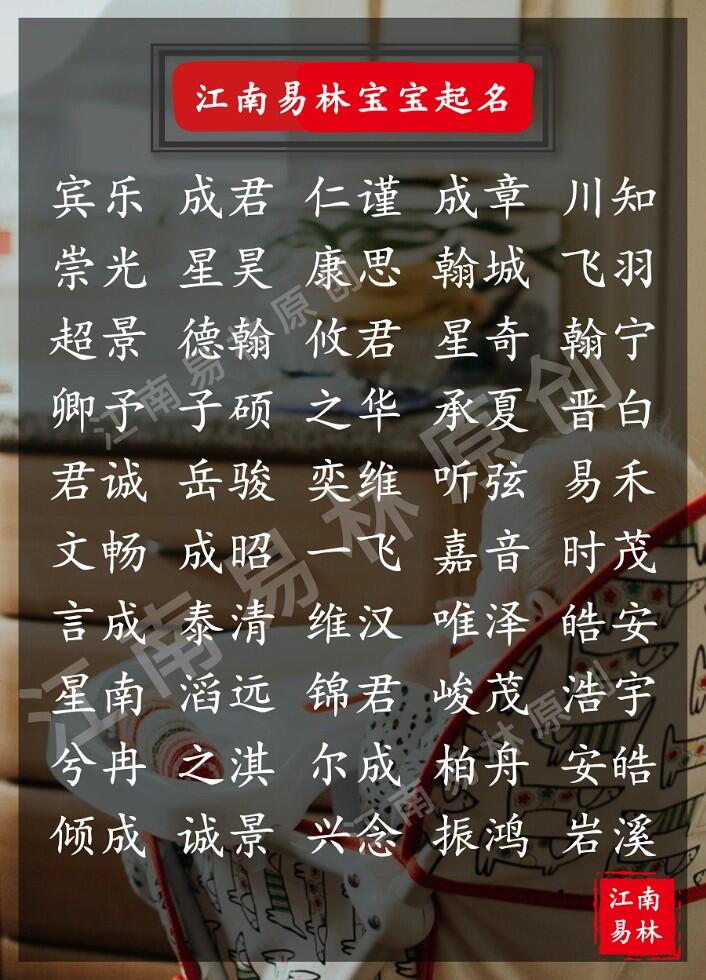 江南易林宝宝起名
宾乐 成君 仁谨 成章 川知
崇光 星昊 康思 翰城 飞羽
超景 德翰 攸君 星奇 翰宁
卿予 子硕 之华 承夏 晋白
君诚 岳骏 奕维 听弦 易禾
文畅 成昭 一飞 嘉音 时茂
言成 泰清 维汉 唯泽 皓安
星南 滔远 锦君 峻茂 浩宇
兮冉 之淇 尔成 柏舟 安皓
倾成 诚景 兴念 振鸿 岩溪
江南易林原创
江南易林原创
江南易林原创
江南
易林